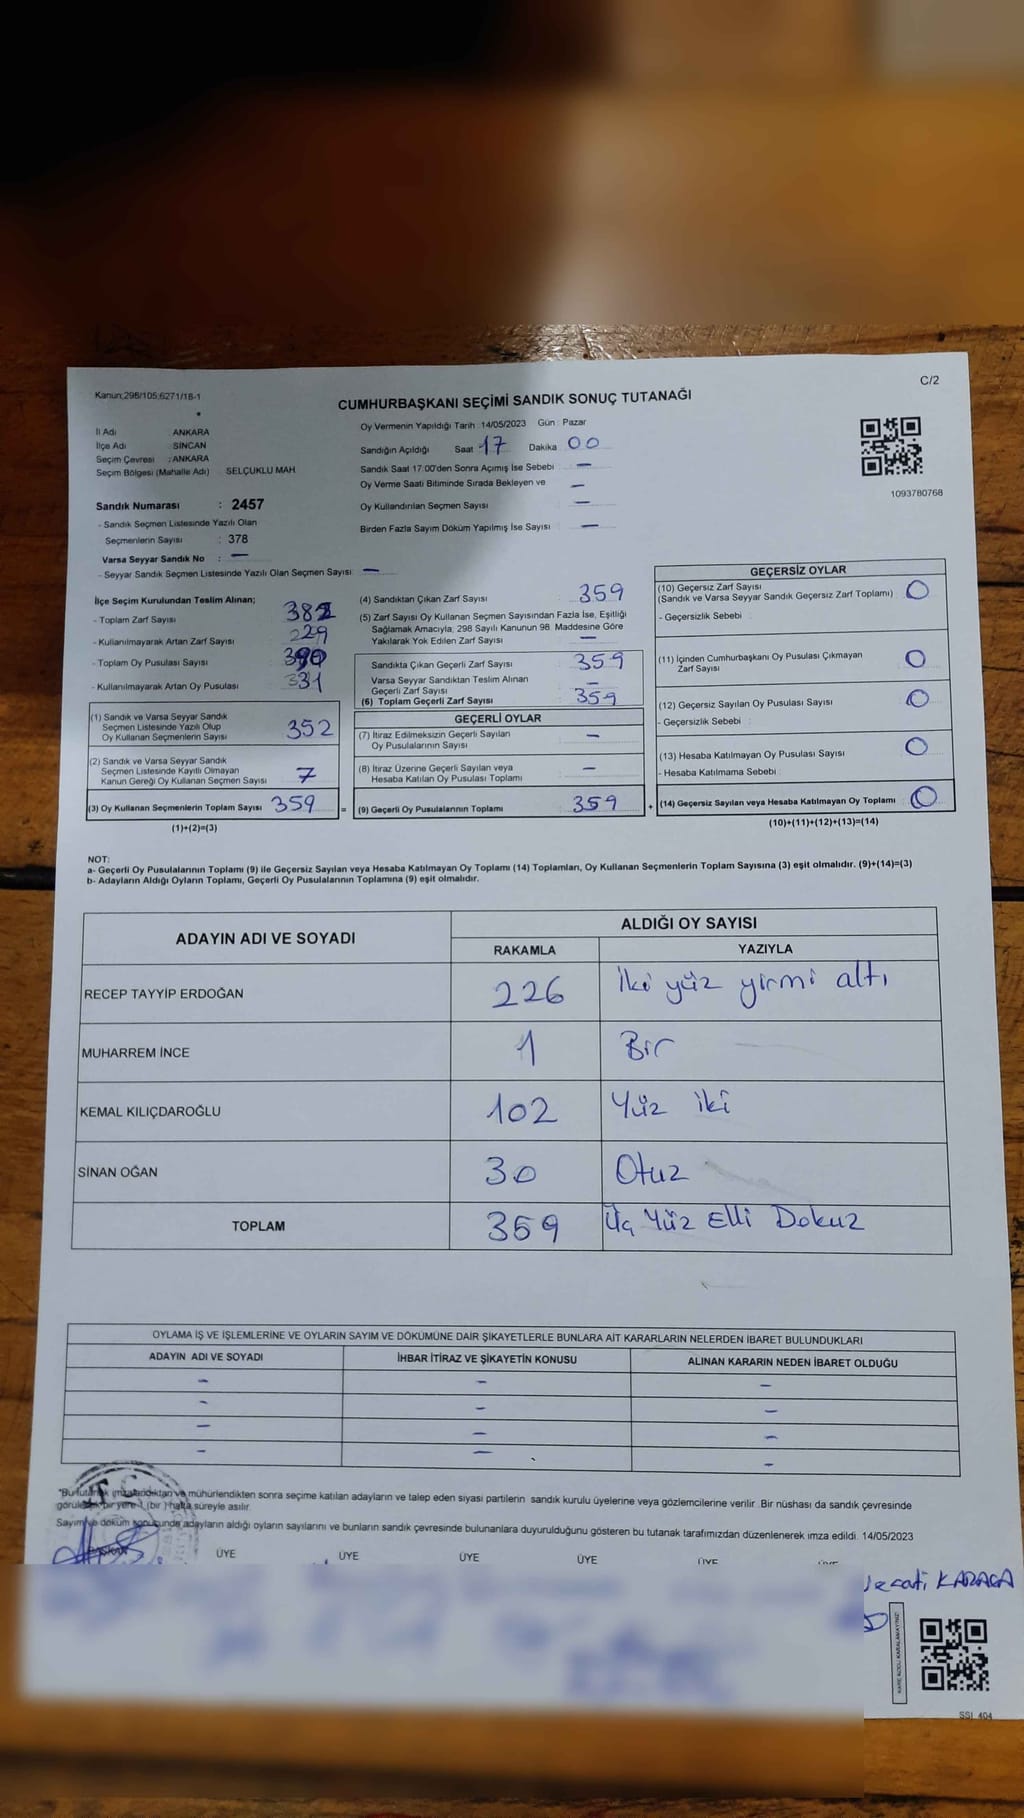 Kanun;298/105;6271/18-1
C/2
CUMHURBAŞKANI SEÇİMİ SANDIK SONUÇ TUTANAĞI
İl Adı : ANKARA
İlçe Adı : SİNCAN
Seçim Çevresi : ANKARA
Seçim Bölgesi (Mahalle Adı) SELÇUKLU MAH
Sandık Numarası : 2457
- Sandık Seçmen Listesinde Yazılı Olan
Seçmenlerin Sayısı : 378
Varsa Seyyar Sandık No : —
- Seyyar Sandık Seçmen Listesinde Yazılı Olan Seçmen Sayısı: —
Oy Vermenin Yapıldığı Tarih :14/05/2023 Gün : Pazar
Sandığın Açıldığı Saat 17 Dakika 00
Sandık Saat 17:00'den Sonra Açımış İse Sebebi —
Oy Verme Saati Bitiminde Sırada Bekleyen ve —
Oy Kullandırılan Seçmen Sayısı —
Birden Fazla Sayım Döküm Yapılmış İse Sayısı —
1093780768
İlçe Seçim Kurulundan Teslim Alınan;
- Toplam Zarf Sayısı
- Kullanılmayarak Artan Zarf Sayısı
- Toplam Oy Pusulası Sayısı
- Kullanılmayarak Artan Oy Pusulası
(1) Sandık ve Varsa Seyyar Sandık
Seçmen Listesinde Yazılı Olup
Oy Kullanan Seçmenlerin Sayısı 352
(2) Sandık ve Varsa Seyyar Sandık
Seçmen Listesinde Kayıtlı Olmayan
Kanun Gereği Oy Kullanan Seçmen Sayısı 7
(3) Oy Kullanan Seçmenlerin Toplam Sayısı 359
(1)+(2)=(3)
(4) Sandıktan Çıkan Zarf Sayısı : 359
(5) Zarf Sayısı Oy Kullanan Seçmen Sayısından Fazla İse, Eşitliği
Sağlamak Amacıyla, 298 Sayılı Kanunun 98. Maddesine Göre
Yakılarak Yok Edilen Zarf Sayısı —
Sandıkta Çıkan Geçerli Zarf Sayısı 359
Varsa Seyyar Sandıktan Teslim Alınan
Geçerli Zarf Sayısı —
(6) Toplam Geçerli Zarf Sayısı 359
GEÇERLİ OYLAR
(7) İtiraz Edilmeksizin Geçerli Sayılan
Oy Pusulalarının Sayısı —
(8) İtiraz Üzerine Geçerli Sayılan veya
Hesaba Katılan Oy Pusulası Toplamı —
= (9) Geçerli Oy Pusulalarının Toplamı 359 +
GEÇERSİZ OYLAR
(10) Geçersiz Zarf Sayısı
(Sandık ve Varsa Seyyar Sandık Geçersiz Zarf Toplamı) 0
- Geçersizlik Sebebi :
(11) İçinden Cumhurbaşkanı Oy Pusulası Çıkmayan
Zarf Sayısı 0
(12) Geçersiz Sayılan Oy Pusulası Sayısı 0
- Geçersizlik Sebebi :
(13) Hesaba Katılmayan Oy Pusulası Sayısı 0
- Hesaba Katılmama Sebebi :
(14) Geçersiz Sayılan veya Hesaba Katılmayan Oy Toplamı 0
(10)+(11)+(12)+(13)=(14)
NOT:
a- Geçerli Oy Pusulalarının Toplamı (9) ile Geçersiz Sayılan veya Hesaba Katılmayan Oy Toplamı (14) Toplamları, Oy Kullanan Seçmenlerin Toplam Sayısına (3) eşit olmalıdır. (9)+(14)=(3)
b- Adayların Aldığı Oyların Toplamı, Geçerli Oy Pusulalarının Toplamına (9) eşit olmalıdır.
ADAYIN ADI VE SOYADI
ALDIĞI OY SAYISI
RAKAMLA YAZIYLA
RECEP TAYYİP ERDOĞAN 226 İki yüz yirmi altı
MUHARREM İNCE 1 Bir
KEMAL KILIÇDAROĞLU 102 Yüz iki
SİNAN OĞAN 30 Otuz
TOPLAM 359 Üç Yüz Elli Dokuz
OYLAMA İŞ VE İŞLEMLERİNE VE OYLARIN SAYIM VE DÖKÜMÜNE DAİR ŞİKAYETLERLE BUNLARA AİT KARARLARIN NELERDEN İBARET BULUNDUKLARI
ADAYIN ADI VE SOYADI İHBAR İTİRAZ VE ŞİKAYETİN KONUSU ALINAN KARARIN NEDEN İBARET OLDUĞU
— — —
— — —
— — —
— — —
"Bu tutanak imzalandıktan ve mühürlendikten sonra seçime katılan adayların ve talep eden siyasi partilerin sandık kurulu üyelerine veya gözlemcilerine verilir. Bir nüshası da sandık çevresinde
görülecek bir yere 1 (bir ) hafta süreyle asılır.
Sayım ve döküm sonucunda adayların aldığı oyların sayılarını ve bunların sandık çevresinde bulunanlara duyurulduğunu gösteren bu tutanak tarafımızdan düzenlenerek imza edildi. 14/05/2023
BAŞKAN ÜYE ÜYE ÜYE ÜYE ÜYE
KARACA
SSI_404